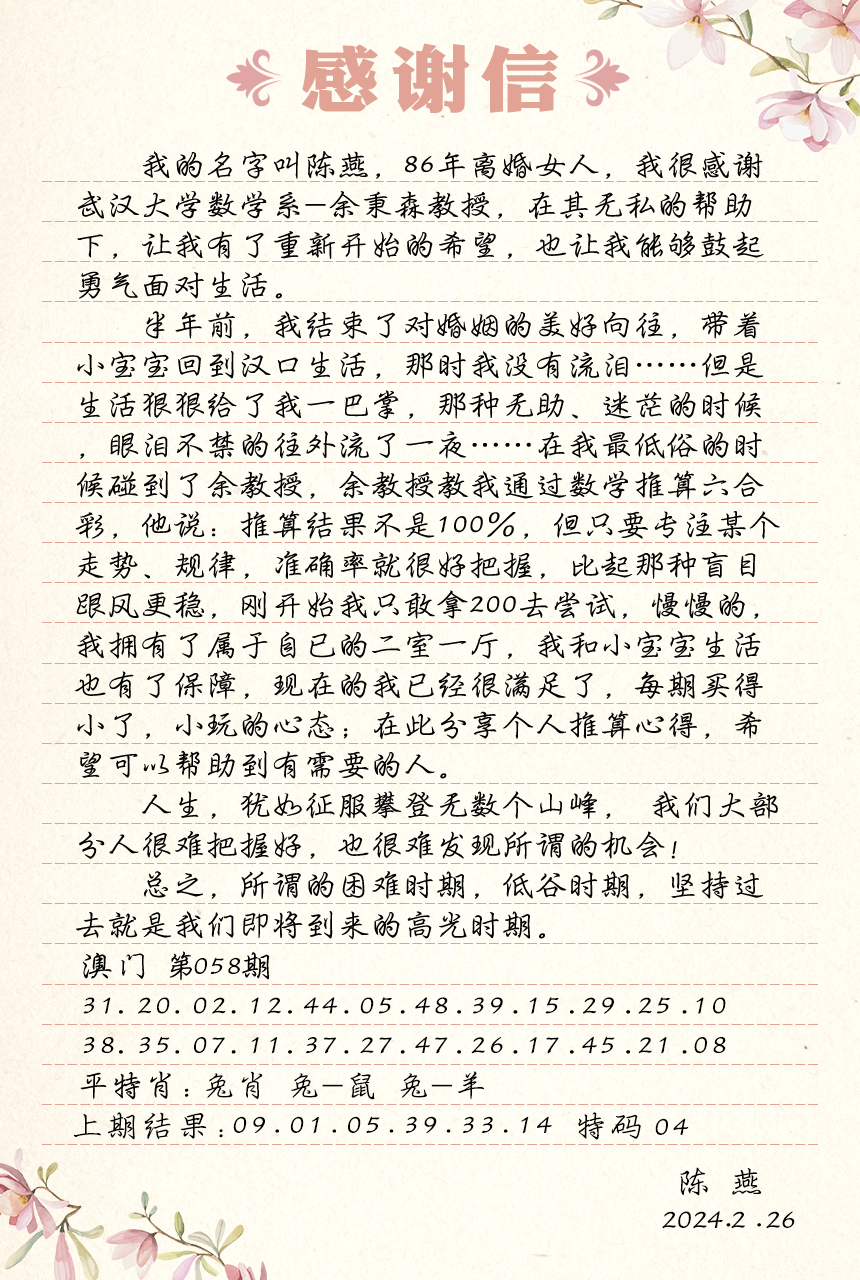 感谢信
我的名字叫陈燕，86年离婚女人，我很感谢
武汉大学数学系—余秉森教授，在其无私的帮助
下，让我有了重新开始的希望，也让我能够鼓起
勇气面对生活。
半年前，我结束了对婚姻的美好向往，带着
小宝宝回到汉口生活，那时我没有流泪……但是
生活狠狠给了我一巴掌，那种无助、迷茫的时候
，眼泪不禁的往外流了一夜……在我最低俗的时
候碰到了余教授，余教授教我通过数学推算六合
彩，他说：推算结果不是100%，但只要专注某个
走势、规律，准确率就很好把握，比起那种盲目
跟风更稳，刚开始我只敢拿200去尝试，慢慢的，
我拥有了属于自已的二室一厅，我和小宝宝生活
也有了保障，现在的我已经很满足了，每期买得
小了，小玩的心态；在此分享个人推算心得，希
望可以帮助到有需要的人。
人生，犹如征服攀登无数个山峰， 我们大部
分人很难把握好，也很难发现所谓的机会！
总之，所谓的困难时期，低谷时期，坚持过
去就是我们即将到来的高光时期。
澳门 第058期
31.20.02.12.44.05.48.39.15.29.25.10
38.35.07.11.37.27.47.26.17.45.21.08
平特肖：兔肖 兔—鼠 兔—羊
上期结果：09.01.05.39.33.14 特码 04
陈 燕
2024.2.26